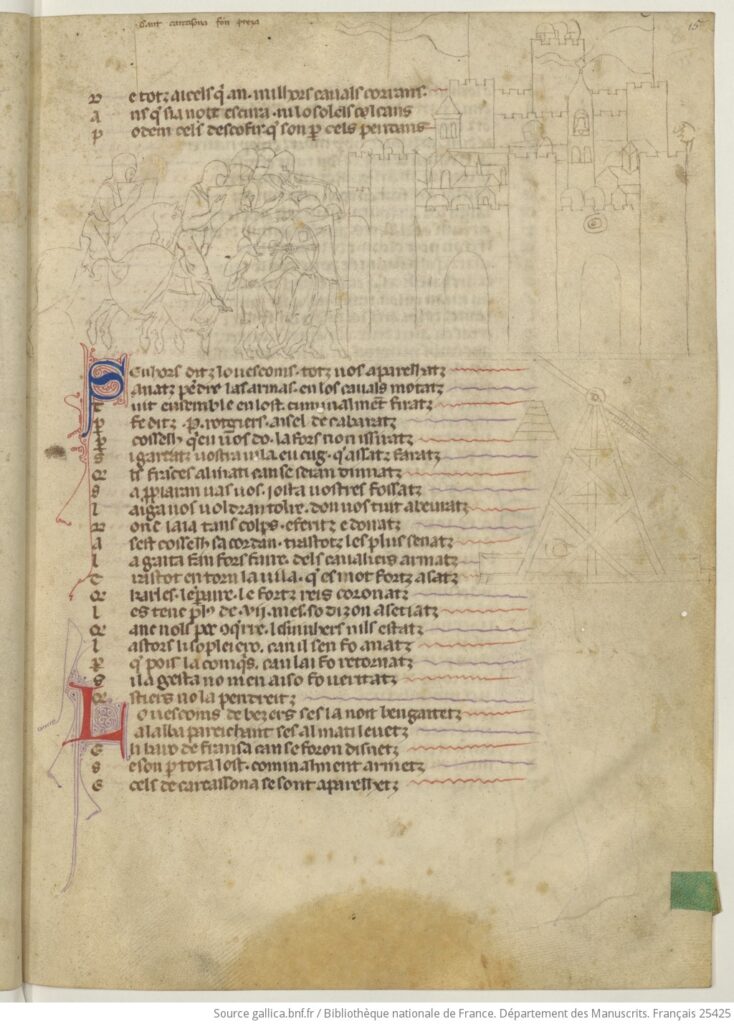 15
v e totz aicels q̃ an milhors cavals corrans.
a ns q̃ sia noit escura ni lo soleils colcans
p odem cels descofir q̃ son p cels pendans
S enhors ditz lo vescoms totz vos aparelhatz
a natz pẽdre las armas en los cavals mõtatz
t uit ensemble en lost cuminalmẽt firatz
p fe ditz .P. rotgiers aisel de cabaratz
p cosselh q̃ eu ṽos do la fors non issiratz
s i gardatz vostra vila eu cug q̃ assatz faratz
li frãces al mati can se seran dinnatz
s a ppiaran vas vos josta vostres fossatz
l aiga vos voldran tolre don vos tuit abeuratz
a donc i aia tans colps e feritz e donatz
a sest cosselh sacordan trastotz les plus senatz
l a gaita fan fors faire dels cavaliers armatz
t rastot entorn la vila q̃ es mot fortz asatz
karles lenpaire le fortz reis coronatz
l es tenc .vij. ans so dizon asetiatz
anc nols poc cõq̃rre livern ni ls estatz
l as tors li sopleiero can il sen fo anatz
q̃ pois la comq̃s can lai fo retornatz
s i la gesta no men aiso fo veritatz
estiers no la pendreitz
L o vescoms de bezers ses la noit ben gaitetz
a lalba pareichant ses al mati levetz
e li baro de fransa can se foron disnetz
s e son p tota lost cominalment armetz
e cels de carcassona se sont aparelhetz
Source gallica.bnf.fr / Bibliothèque nationale de France. Département des Manuscrits. Français 25425